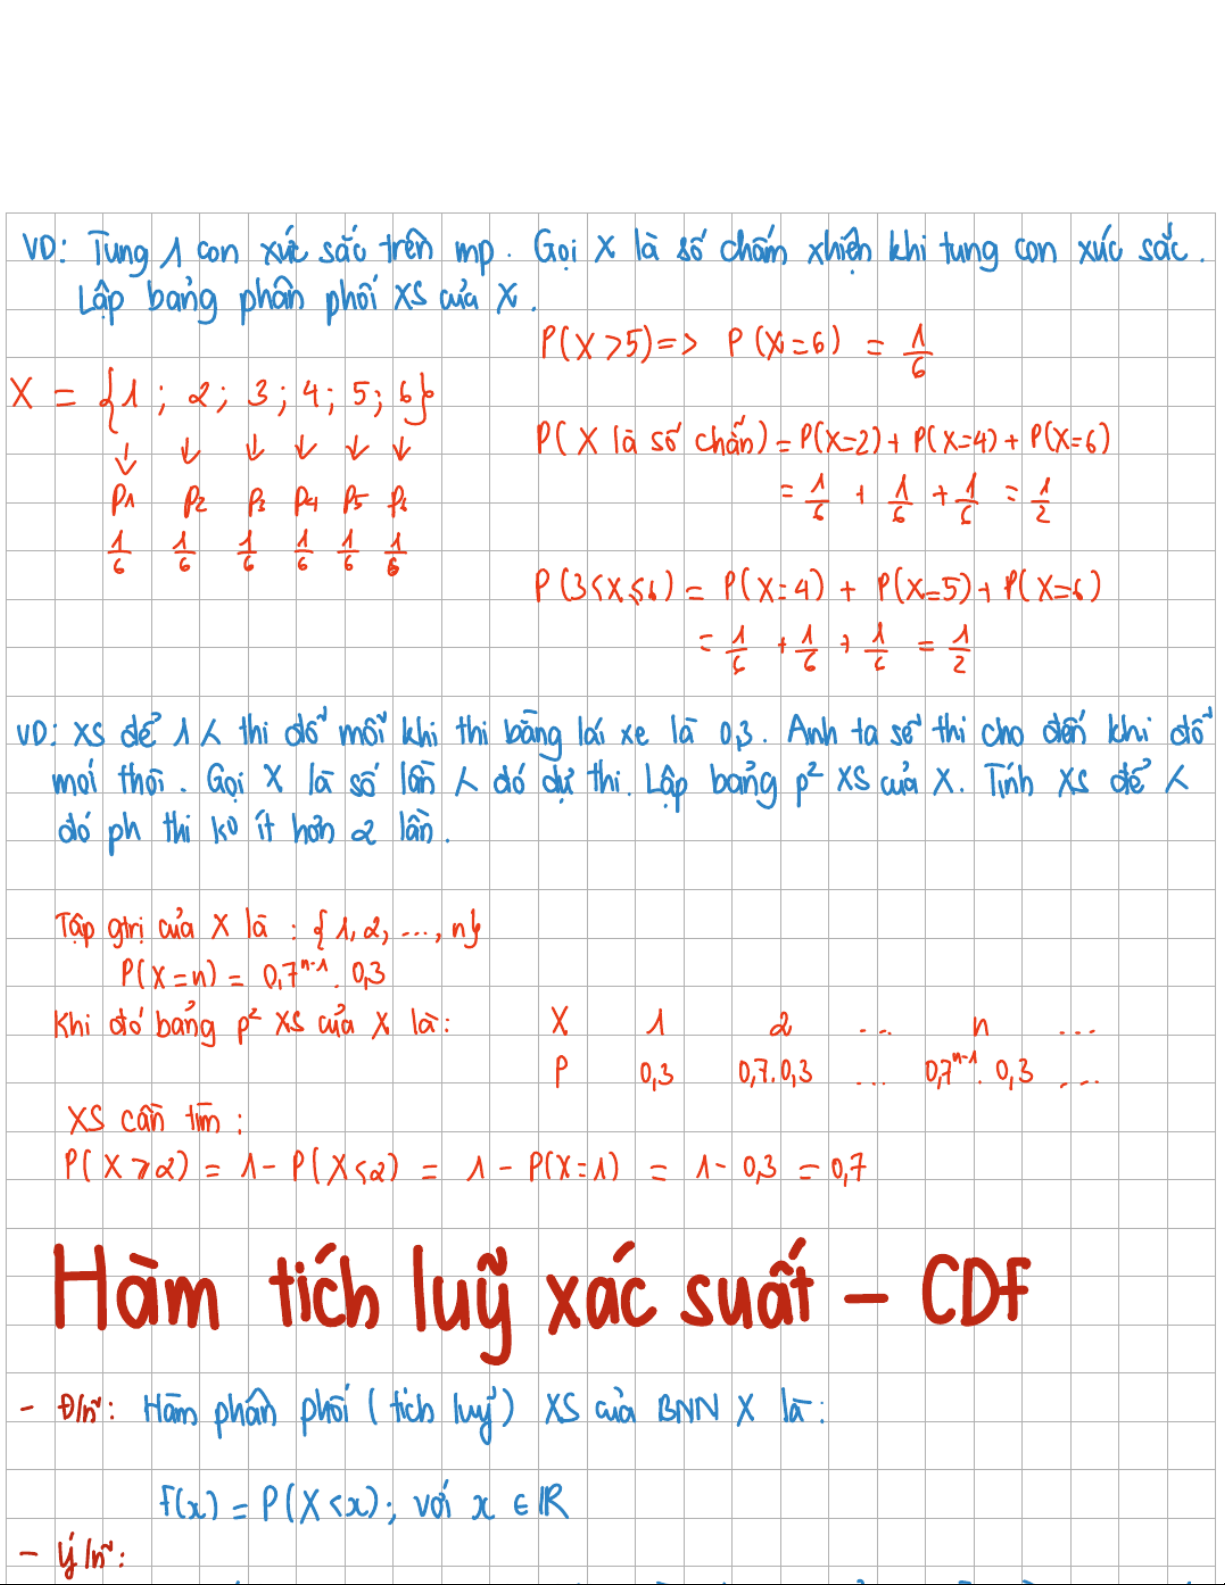 VD: Tung 1 con xúc sắc trên mp. Gọi X là số chấm xhiện khi tung con xúc sắc.
Lập bảng phân phối XS của X.
P(X>5) => P(X=6) = 1/6
X = {1; 2; 3; 4; 5; 6}
↓ ↓ ↓ ↓ ↓ ↓
P1 P2 P3 P4 P5 P6
1/6 1/6 1/6 1/6 1/6 1/6
P(X là số chẵn) = P(X=2) + P(X=4) + P(X=6)
= 1/6 + 1/6 + 1/6 = 1/2
P(3<X≤6) = P(X=4) + P(X=5) + P(X=6)
= 1/6 + 1/6 + 1/6 = 1/2
VD: XS để 1 thi đỗ mỗi khi thi bằng lái xe là 0,3. Anh ta sẽ thi cho đến khi đỗ
mới thôi. Gọi X là số lần đó dự thi. Lập bảng p² XS của X. Tính XS để
đó ph thi ko ít hơn 2 lần.
Tập gtrị của X là : {1, 2, ..., n}
P(X=n) = 0,7ⁿ⁻¹. 0,3
Khi đó bảng p² XS của X là:
X 1 2 ... n ...
P 0,3 0,7.0,3 ... 0,7ⁿ⁻¹. 0,3 ...
XS cần tìm :
P(X≥2) = 1 - P(X<2) = 1 - P(X=1) = 1 - 0,3 = 0,7
Hàm tích luỹ xác suất – CDF
- Đ/n~: Hàm phân phối (tích luỹ) XS của BNN X là:
F(x) = P(X<x); với x ∈ ℝ
- Ý/n~: